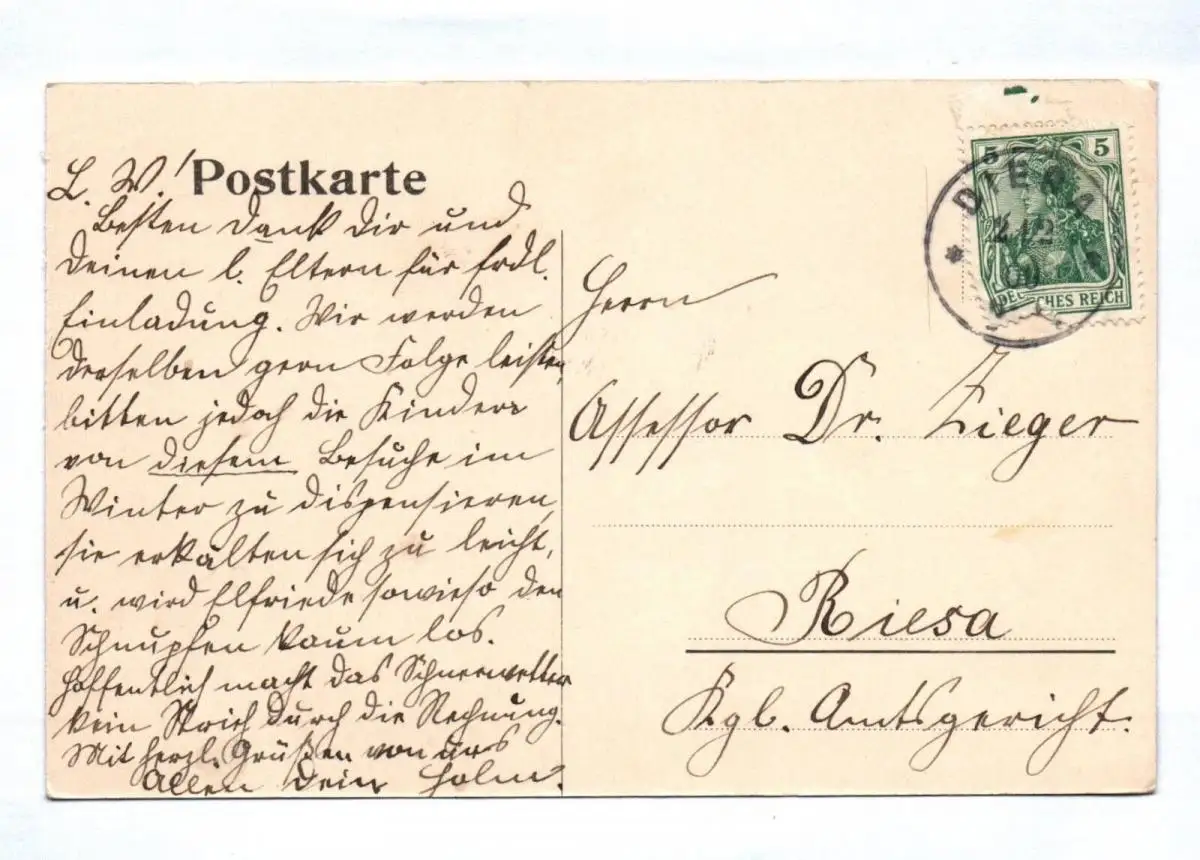 Postkarte
L. W.!
Besten Dank Dir und
Deinen l. Eltern für frdl.
Einladung. Wir werden
derselben gern Folge leisten,
bitten jedoch die Kinder
von diesem Besuche im
Winter zu dispensieren,
sie erkälten sich zu leicht,
u. wird Elfriede sowieso den
Schnupfen kaum los.
Hoffentlich macht das Schneewetter
kein Strich durch die Rechnung.
Mit herzl. Grüßen von uns
Allen Dein
Herrn
Assessor Dr. Zieger
Riesa
Kgl. Amtsgericht.
5 5
DEUTSCHES REICH